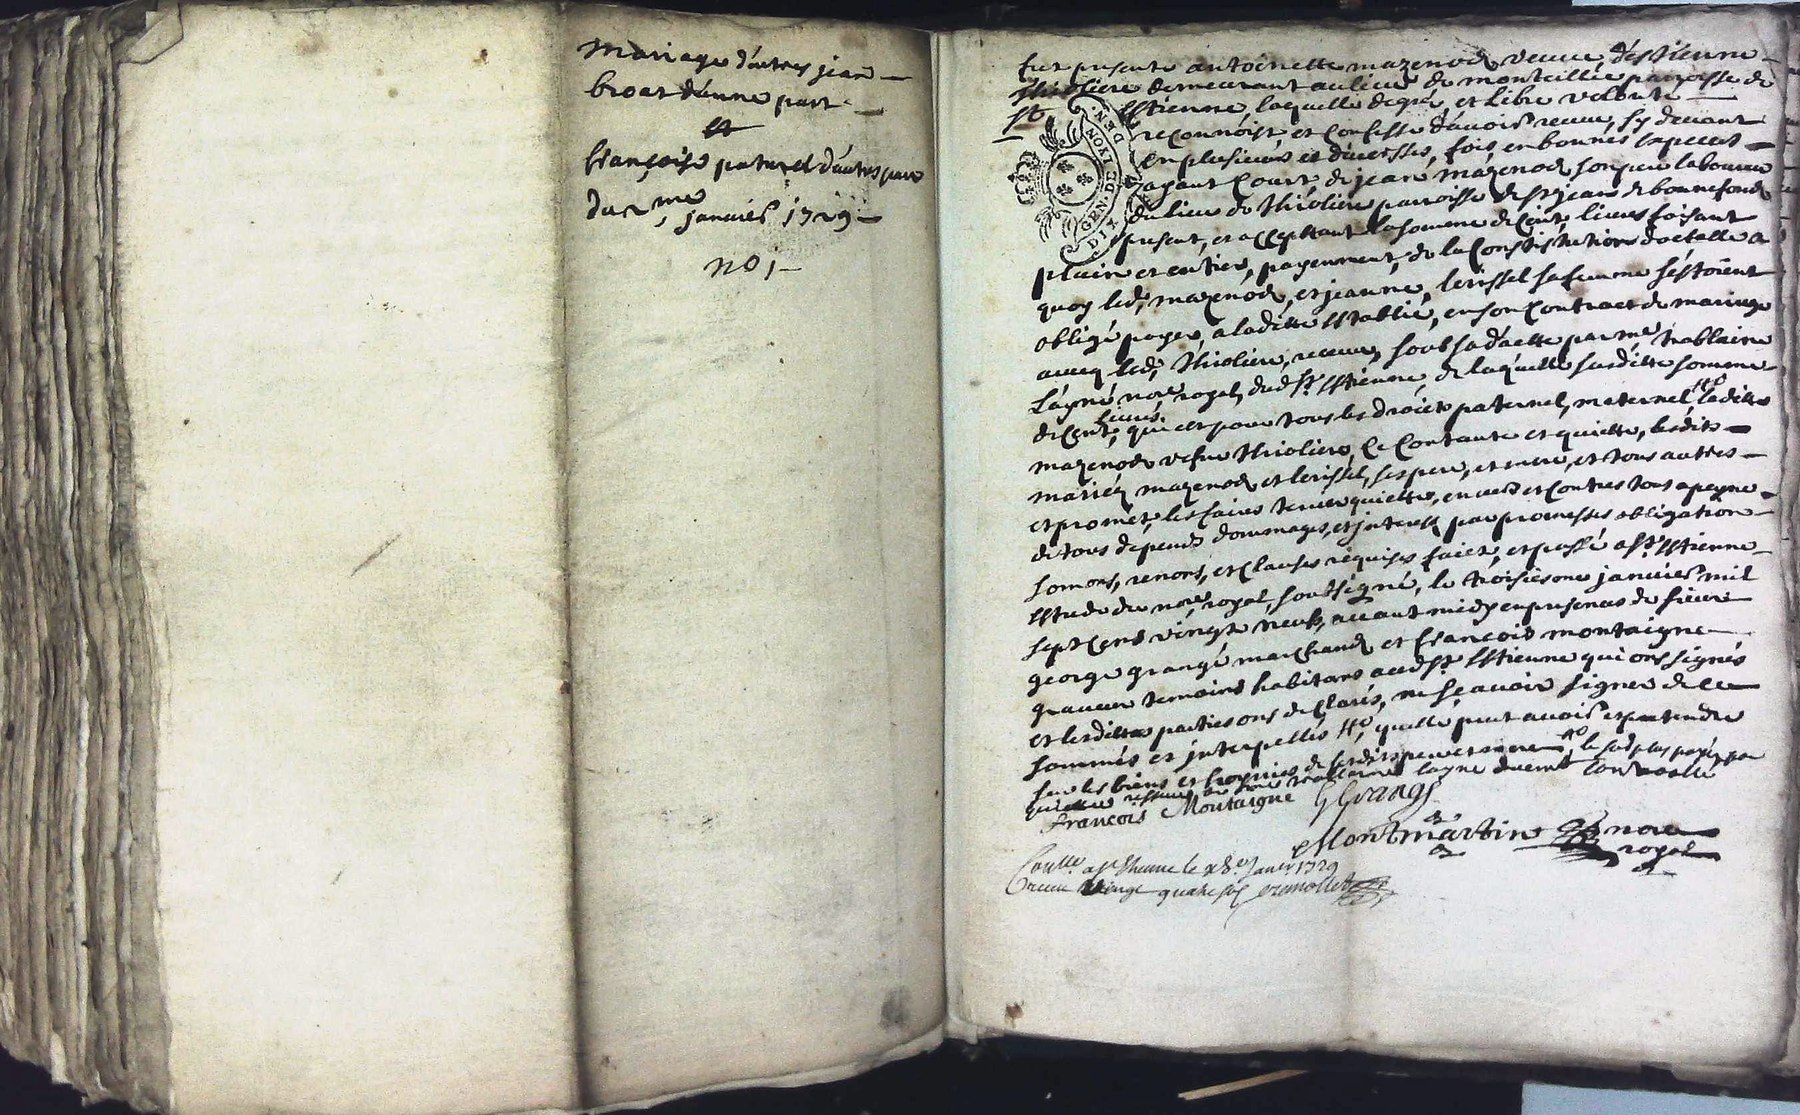 Mariage d'entres jean
broat d'une part
et
françoise paturel d'autres part
du 2me janvier 1729
no 1
fut presente antoinette mazenod veuve d'estienne
thioliere demeurant au lieu de monteillie parroisse de
st Estienne, laquelle de gré, et libre volonté
reconnoist et confesse d'avoir receu, sy devant
en plusieurs et diversses, fois, en bonnes especes
ayant court de jean mazenod son pere laboureur
du lieu de thioliere parroisse de st jean de bonnefond
present, et acceptant la somme de cent, livres faisant
plain et entier, payemment, de la Constitution doctalle a
quoy led, mazenod, et jeanne, lerissel sa femme s'estoient
obligé payer, a laditte establie, en son Contract de mariage
avecq led, thioliere, receu, soub sa datte par me trablaine
L'ayné nore royal, dud st Estienne, de laquelle susditte somme
de cent, livres, qui est pour tous les droicts paternel, maternel, laditte
mazenod vefve thioliere, se Contante et quitte, lesdits
mariés mazenod et lerissel, ses pere, et mere, et tous autres
et promet, les faires tenir quittes, envers et contres tous a peyne
de tous depends dommages, et interest par promesses obligation
somons, renons, et clauses requises faict, et passé a st Estienne
estude du nore, royal, soubsigné, le troisiesme janvier mil
sept cens vingt neuf, avant midy en presences de sieur
george grangé marchand et françois montaigne
graveur temoins habitans aud st Estienne qui ont signés
et lesdittes parties ont declarés, ne sçavoir signer de ce
sommés et interpellés, quelle peut avoir et pretendre
sur les biens et hoyries de sesdits pere et mere
françois Montaigne G Grangé
Montmartin nore
royal
Conllé a st Etienne le 18e janer 1729
Receu vingt quatre sols
GEN. DE LYON
DIX DEN.